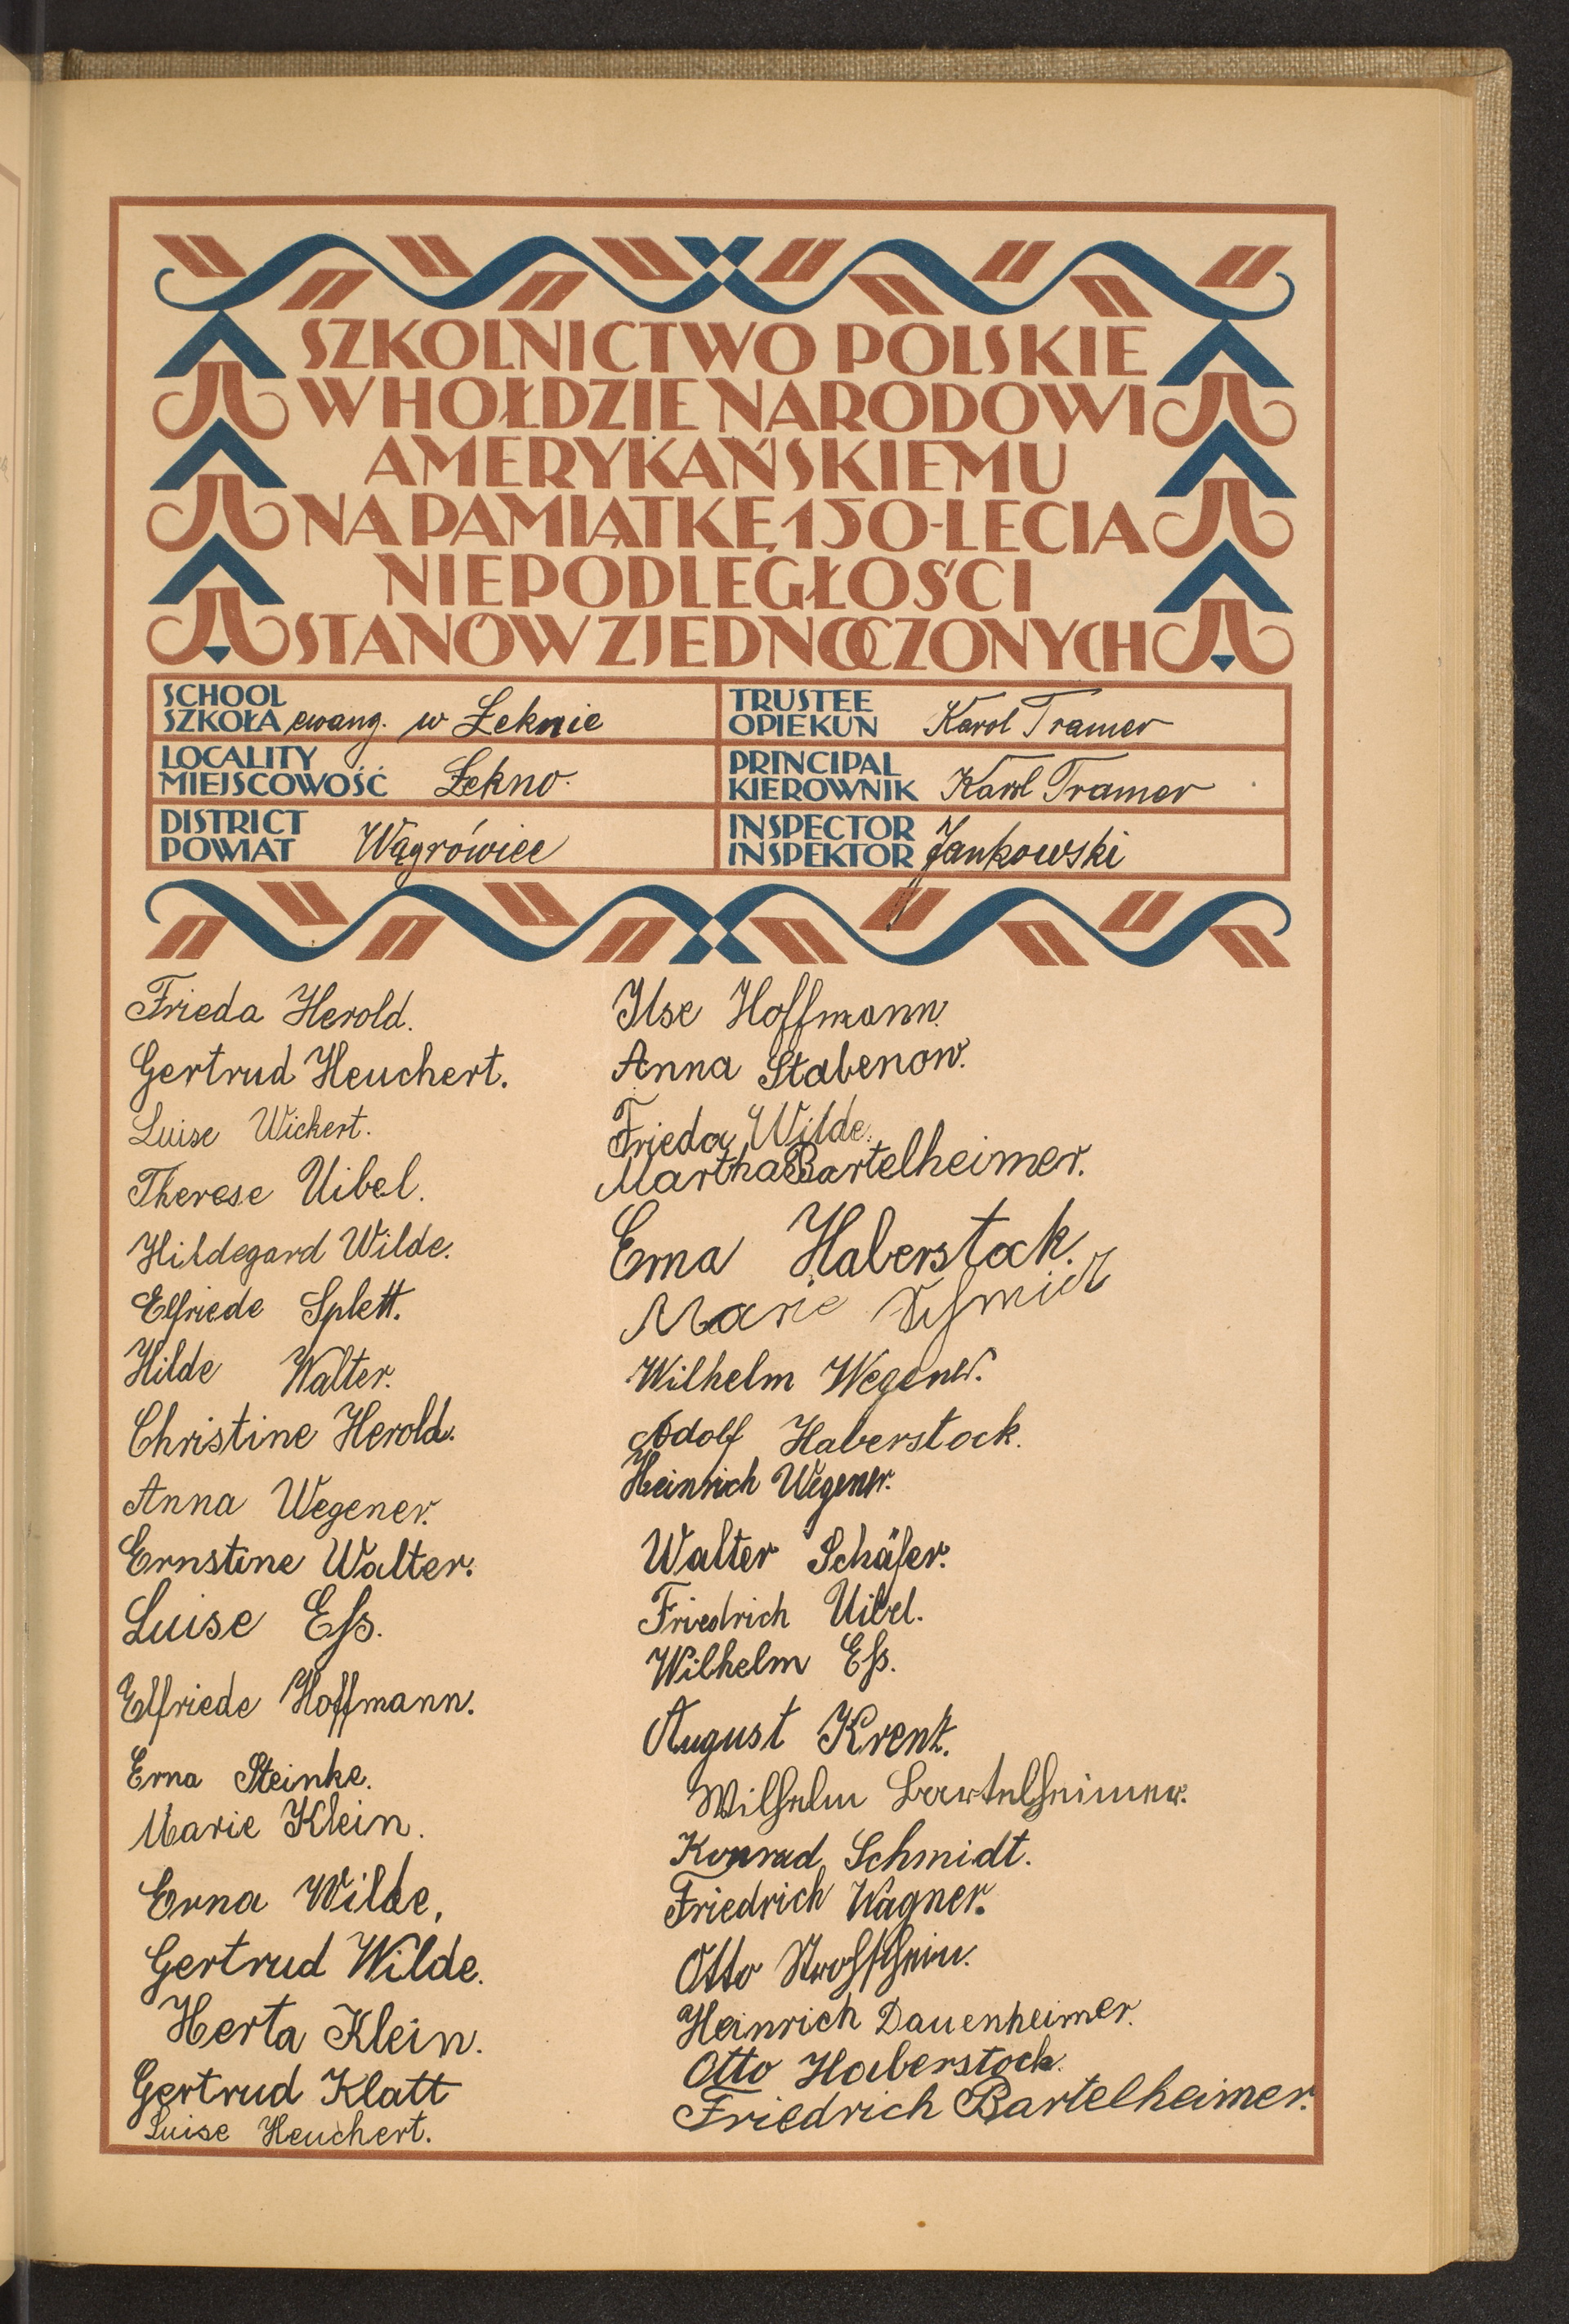 SZKOLNICTWO POLSKIE
W HOŁDZIE NARODOWI
AMERYKAŃSKIEMU
NA PAMIĄTKĘ 150-LECIA
NIEPODLEGŁOŚCI
STANÓW ZJEDNOCZONYCH
SCHOOL
SZKOŁA ewang. w Łeknie
TRUSTEE
OPIEKUN Karol Tramer
LOCALITY
MIEJSCOWOŚĆ Łekno.
PRINCIPAL
KIEROWNIK Karol Tramer
DISTRICT
POWIAT Wągrówiec
INSPECTOR
INSPEKTOR Jankowski
Frieda Herold.
Gertrud Heuchert.
Luise Wickert.
Therese Uibel.
Hildegard Wilde.
Elfriede Splett.
Hilde Walter.
Christine Herold.
Anna Wegener.
Ernstine Walter.
Luise Eſs.
Elfriede Hoffmann.
Erna Steinke.
Marie Klein.
Erna Wilde,
Gertrud Wilde.
Herta Klein.
Gertrud Klatt
Luise Heuchert.
Ilse Hoffmann.
Anna Stabenow.
Frieda Wilde.
Martha Bartelheimer.
Erna Haberstock.
Marie Schmidt
Wilhelm Wegener.
Adolf Haberstock.
Heinrich Wegener.
Walter Schäfer.
Friedrich Uibel.
Wilhelm Eſs.
August Krenz.
Wilhelm Bartelheimer.
Konrad Schmidt.
Friedrich Wagner.
Otto
Heinrich Dauenheimer.
Otto Haberstock.
Friedrich Bartelheimer.